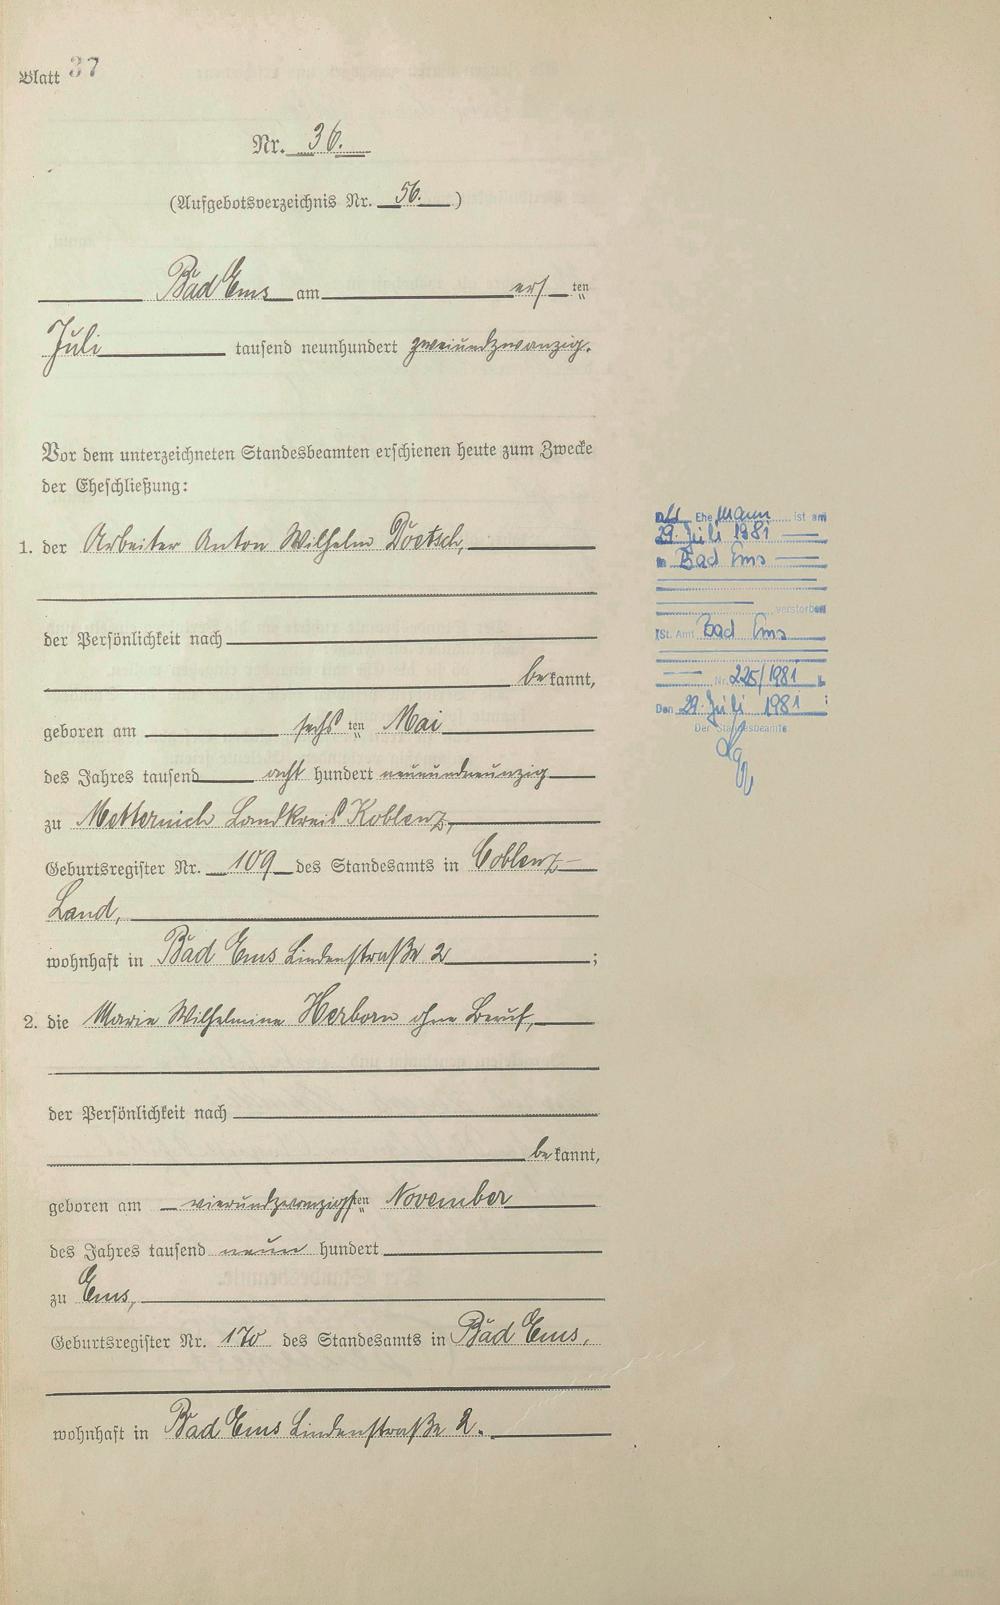 Blatt 37
Nr. 36.
(Aufgebotsverzeichnis Nr. 56.)
Bad Ems am ersten
Juli tausend neunhundert zweiundzwanzig.
Vor dem unterzeichneten Standesbeamten erschienen heute zum Zwecke
der Eheschließung:
1. der Arbeiter Anton Wilhelm Doetsch,
der Persönlichkeit nach
bekannt,
geboren am sechsten Mai
des Jahres tausend acht hundert neunundneunzig
zu Metternich Landkreis Koblenz,
Geburtsregister Nr. 109 des Standesamts in Coblenz-
Land,
wohnhaft in Bad Ems Lindenstraße 2;
2. die Marie Wilhelmine Herborn ohne Beruf,
der Persönlichkeit nach
bekannt,
geboren am vierundzwanzigsten November
des Jahres tausend neun hundert
zu Ems,
Geburtsregister Nr. 170 des Standesamts in Bad Ems,
wohnhaft in Bad Ems Lindenstraße 2.
Ehemann ist am
29. Juli 1981
in Bad Ems
verstorben
St. Amt Bad Ems
Nr. 225/1981
Den 29. Juli 1981
Der Standesbeamte